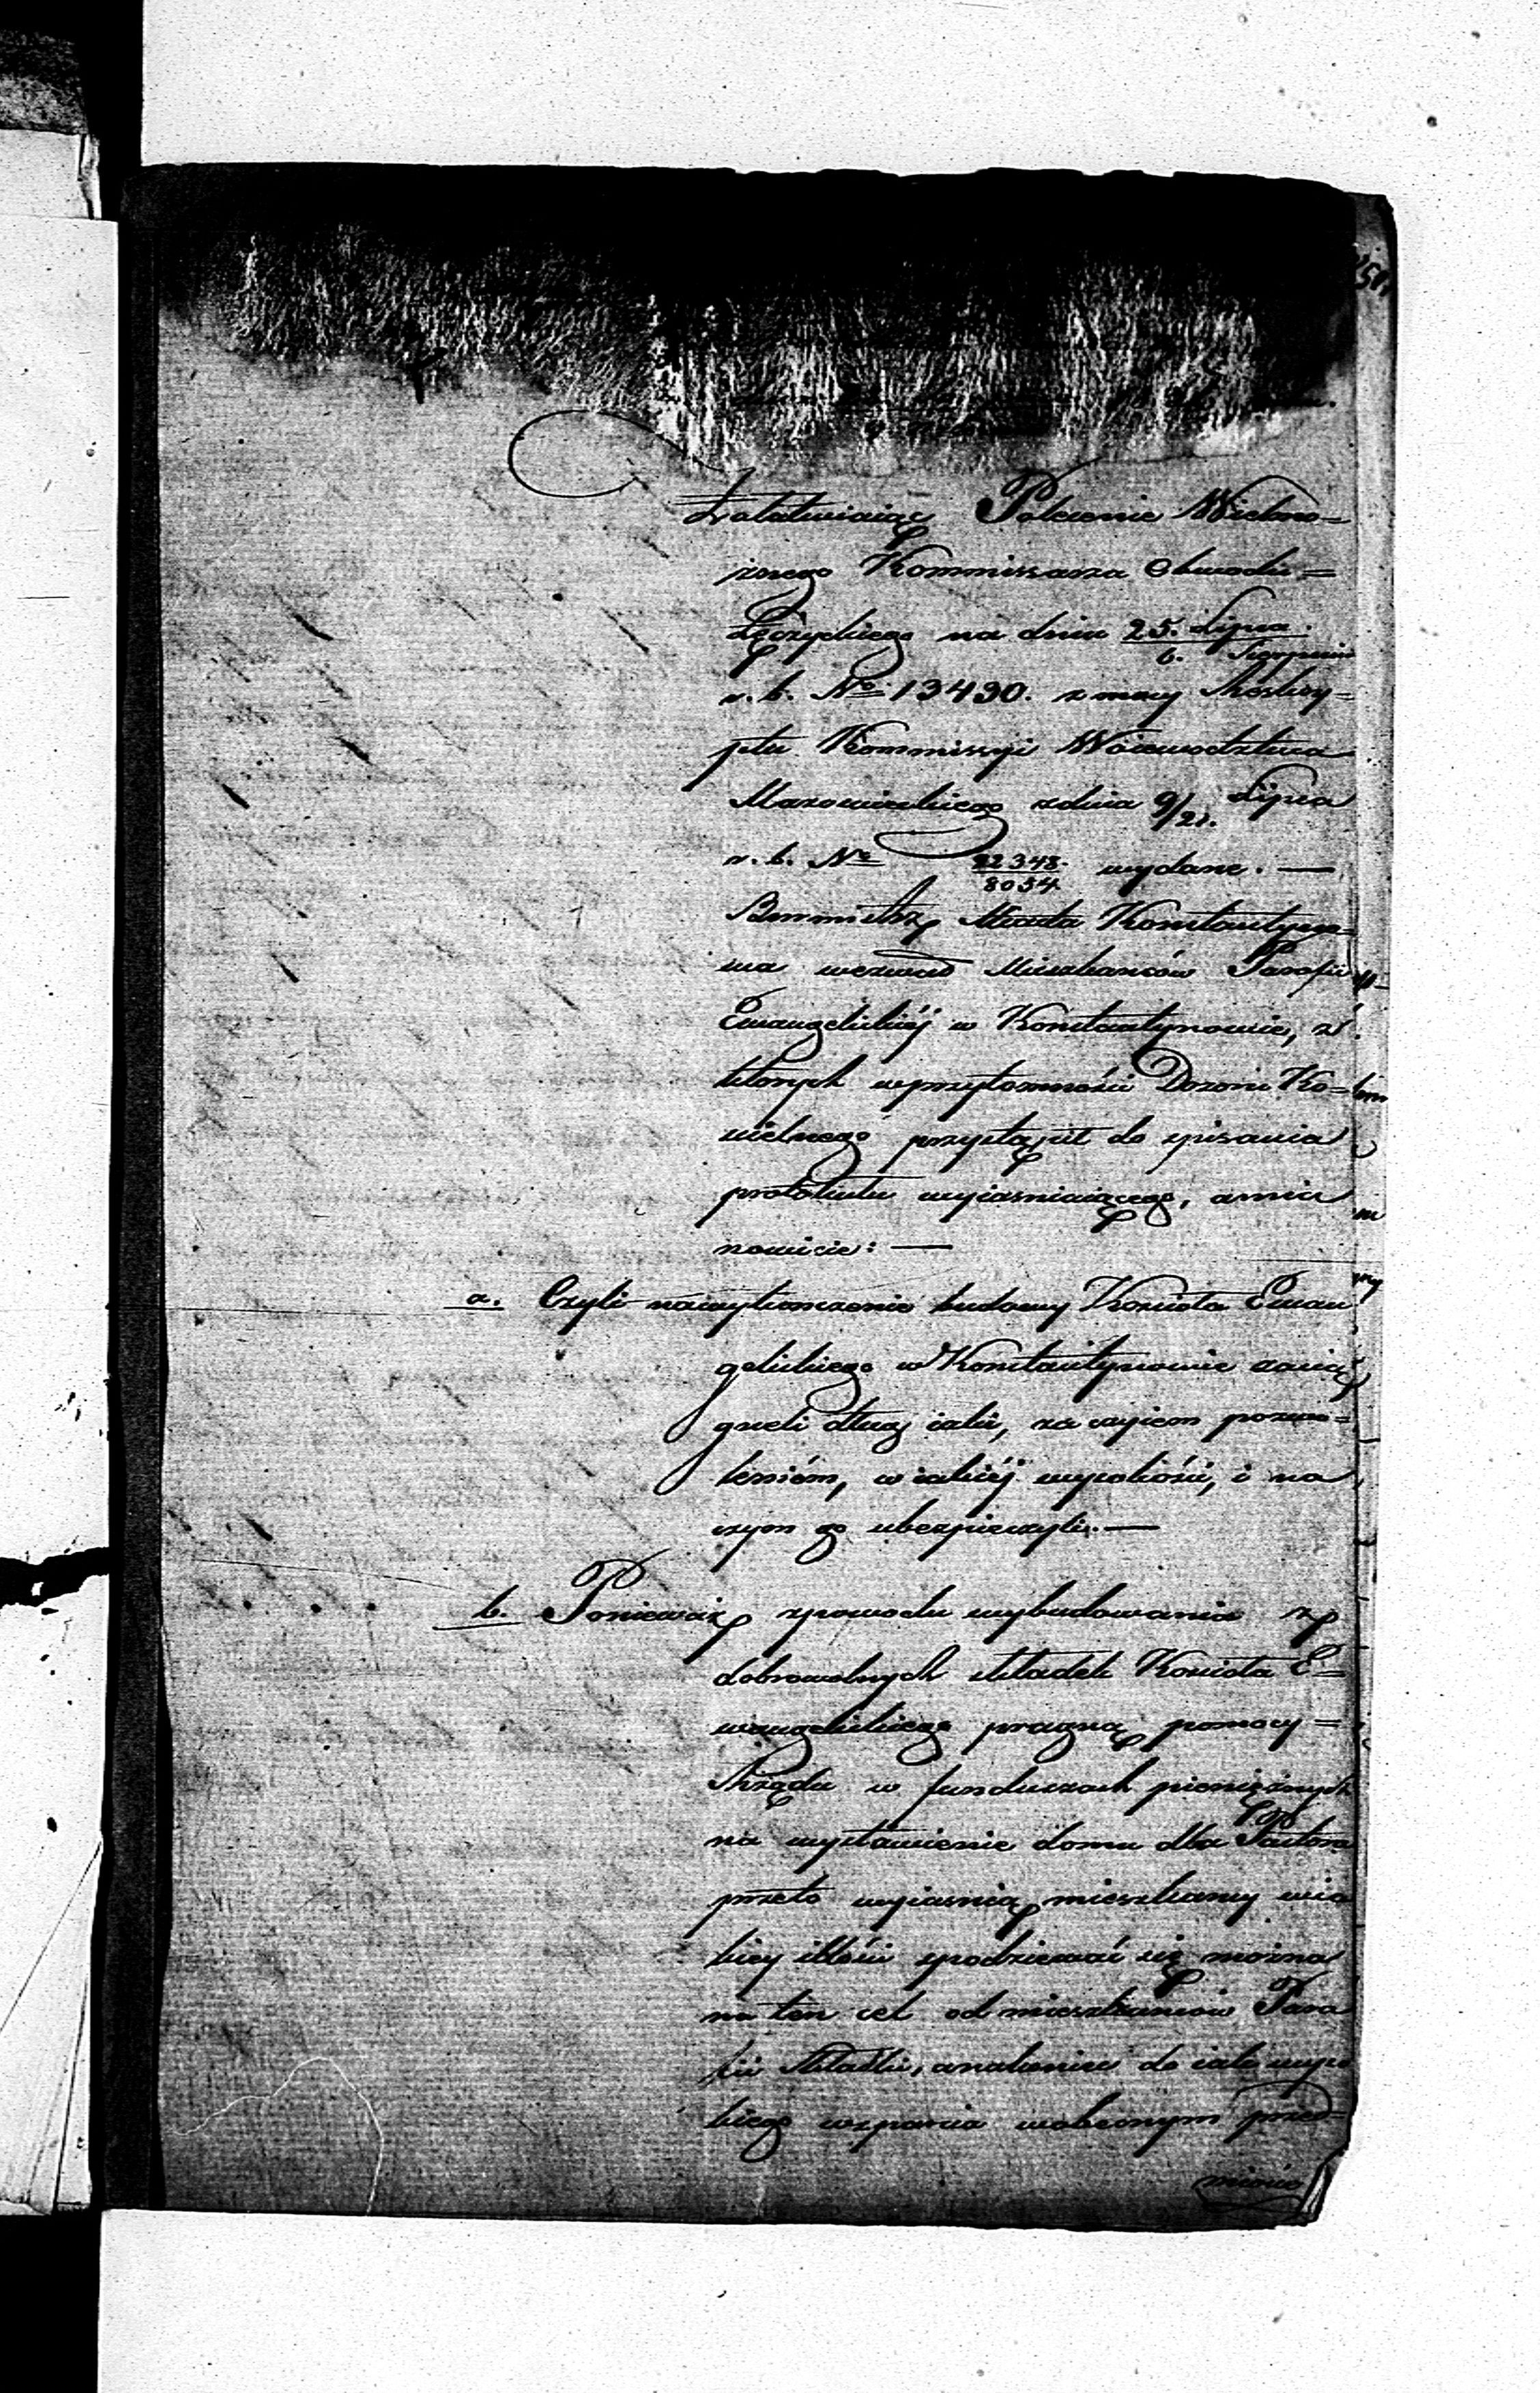 Załatwiaiąc Polecenie Wielmo=
żnego Kommissarza Obwodu=
Łęczyckiego na dniu 25. Lipca / 6. Sierpnia
r. b. No. 13430. z mocy Reskry=
ptu Kommissyi Woiewodztwa
Mazowieckiego zdnia 9/21. Lipca
r. b. No 22348. / 8034 wydane. —
Burmistrz Miasta Konstantyno=
wa wezwał Mieszkańców Parafii
Ewangelickiéj w Konstantynowie, z
których wprzytomności Dozoru Ko=
ścielnego przystąpił do spisania
protokułu wyiaśniaiącego, amia
nowicie: —
a. Czyli nawykończenie budowy Kościoła Ewan
gelickiego w Konstantynowie zacią
gneli dług iaki, za czyiem pozwo=
leniém, w iakiéj wysokości, i na
czym go ubezpieczyli. —
b. Ponieważ zpowodu wybudowania z
dobrowolnych składek Kościoła E=
wangelickiego pragną pomocy=
Rządu w funduszach pieniężnych
na wystawienie domu dla Pastora
przeto wyiaśnią mieszkańcy wia
kiey ilości spodziewać się można
na ten cel od mieszkańców Para
fii Składki, anakoniec do iakiego
wsparcia wobecnym przed=
miocie